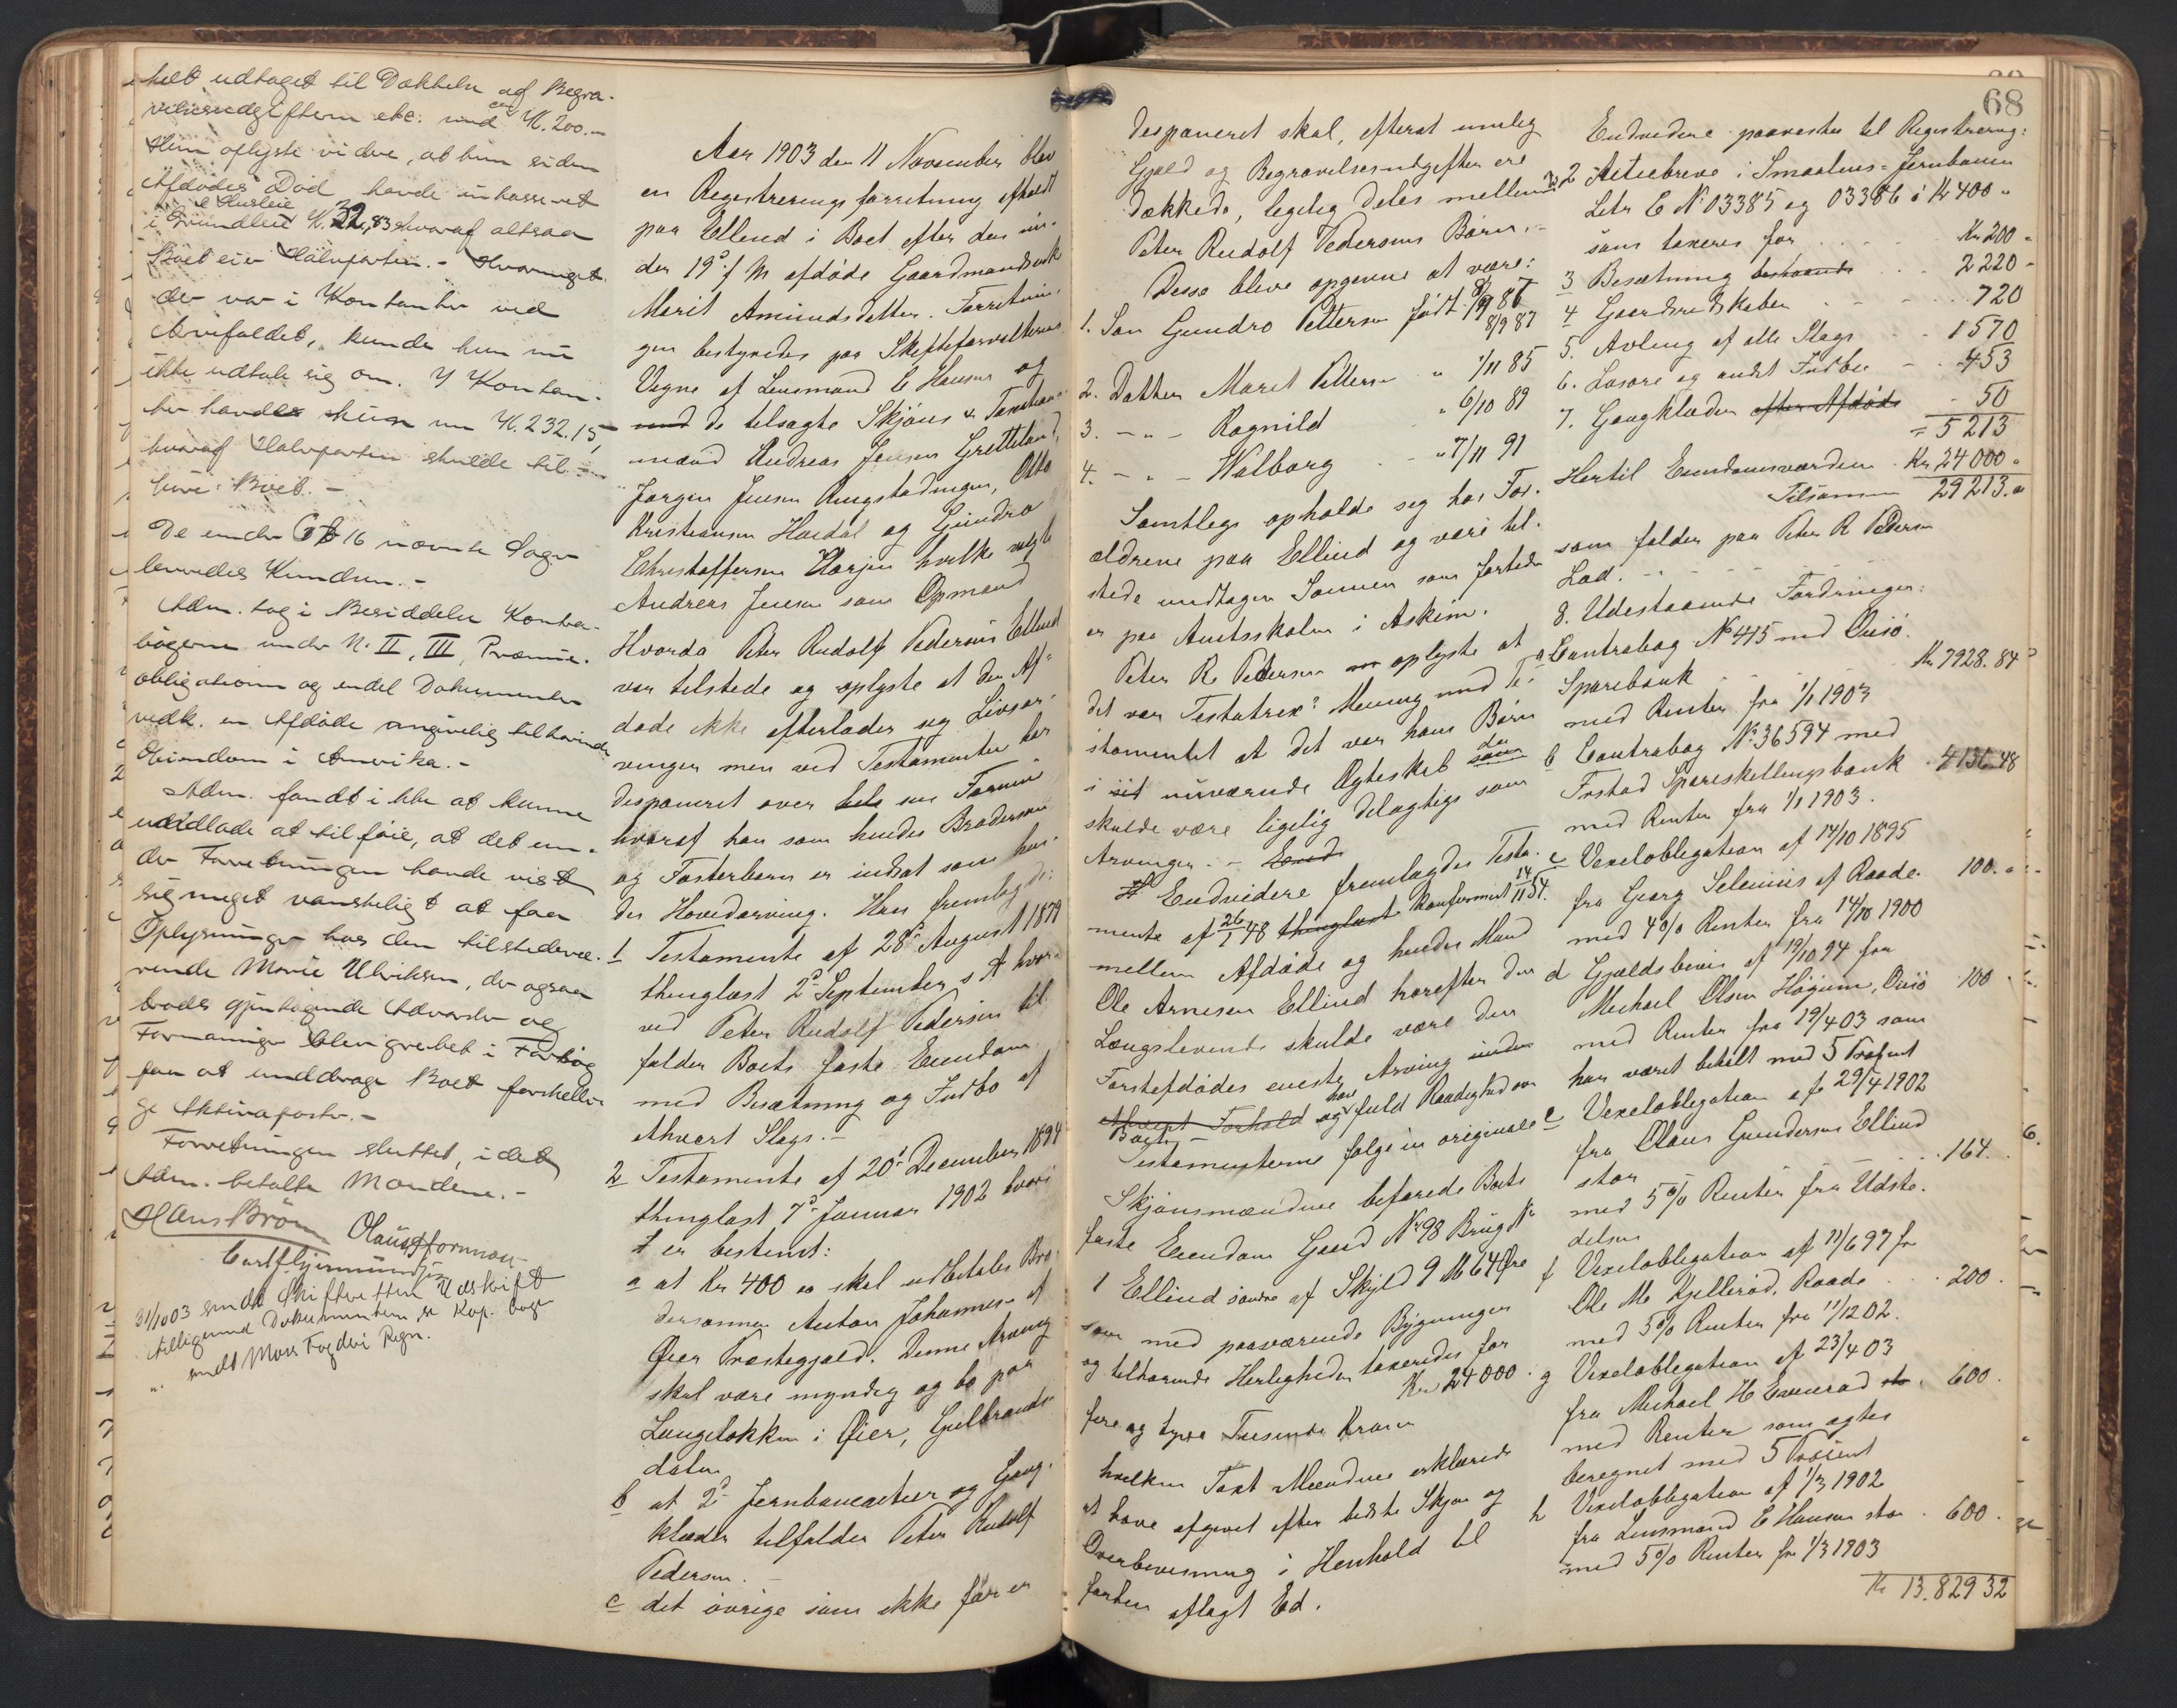 helt udtaget til Dækkelse af Begra-
velsesudgifterne etc. med ca K. 200.-
Hun oplyste videre, at hun siden
Afdødes Død havde inkasseret
i Grundleie & Husleie K. 32,83 hvoraf altsaa
Boet eier Halvparten. - Hvormeget
der var i Kontanter ved
Arvefaldet, kunde hun nu
ikke udtale sig om. I Kontan-
ter havdes nu K. 232.15,
hvoraf Halvparten skulde til-
høre Boet.-
De under 16 nævnte Sager
lernedes Kunderne.-
Adm. tog i Besiddelse Kontra-
bøgerne under N. II, III, Præmie-
obligationen og endel Dokumenter
vedk. en Afdøde angivelig tilhørende
Eiendom i Amerika.-
Adm. fandt ikke at kunne
undlade at tilføie, at det un-
der Forretningen havde vist
sig meget vanskeligt at faa
Oplysninger hos den tilstedevæ-
rende Marie Ulriksen, der ogsaa
trods gjentagende Advarsler og
Formaninger blev grebet i Forsøg
paa at unddrage Boet forskelli-
ge Aktivaposter.-
Forretningen sluttet, idet
Adm. betalte Mændene.-
Hans Brøn
Olaus Hornnæs
31/10 03 sendt Skifteretten Udskrift
tilligemed Dokumenter, se Kop. bog
" sendt Moss Fogderi Regn.
Aar 1903 den 11 November blev
en Registreringsforretning afholdt
paa Ellend i Boet efter den un-
der 19d f M afdøde Gaardmandsenk
Marit Amundsdatter. Forretnin-
gen bestyredes paa Skifteforvalterens
Vegne af Lensmand E Hansen og
med de tilsagte Skjøns & Taxtations
mænd Andreas Jensen Gretteland,
Jørgen Jensen Ringstadengen, Otto
Kristiansen Hoidal og Gundro
Christoffersen Horgen hvilke valgte
Andreas Jensen som Opmand
Hvorda Peter Rudolf Pedersen Ellend
var tilstede og oplyste at den Af-
døde ikke efterlader sig Livsar-
vinger men ved Testamenter har
disponeret over hele sin Formue
hvoraf han som hendes Brodersøn
og Fosterbarn er indsat som hen-
des Hovedarving. Han fremlagde:
1 Testamente af 28d August 1879
thinglæst 2d September s A hvor-
ved Peter Rudolf Pedersen til
falder Boets faste Eiendom
med Besætning og Indbo af
ethvert Slags.-
2 Testamente af 20d December 1894
thinglæst 7d Januar 1902 hvori
er bestemt:
a at Kr 400 skal udbetales Bro-
dersønnen Anton Johannesen af
Øier Præstegjeld. Denne Arving
skal være myndig og bo paa
Langeløkken i Øier, Gulbrands-
dalen
b at 2d Jernbaneaktier og Gang-
klæder tilfalder Peter Rudolf
Pedersen.-
c det øvrige som ikke før er
68
disponeret skal, efterat mulig
Gjæld og Begravelsesudgifter ere
dækkede, ligelig deles mellem
Peter Rudolf Pedersens Børn.-
Disse bleve opgivne at være:
1. Søn Gundro Pettersen født 8/9 87
2. Datter Marit Pettersen " 1/11 85
3. - " - Ragnild " 6/10 89
4. - " - Walborg " 7/11 91
Samtlige opholde sig hos For-
ældrene paa Ellind og vare til-
stede undtagen Sønnen som fortiden
er paa Amtsskolen i Askim.
Peter R. Pedersen oplyste at
det var Testatrix' Mening med Te-
stamentet at det var hans Børn
i sit nuværende Ægteskab der
skulde være ligelig delagtige som
Arvinger.-
Endvidere fremlagdes Testa-
mente af 26/1 48 thinglæst konfirmert 14/11 54.
mellem Afdøde og hendes Mand
Ole Arnesen Ellind hvorefter den
Længstlevende skulde være den
Førstafdødes eneste Arving
og have fuld Raadighed over
Boet.-
Testamenterne følge in originale
Skjønsmændene befarede Boets
faste Eiendom Gaard Nr 98 Brug Nr
1 Ellind søndre af Skyld 9 M 64 Øre
som med paaværende Bygninger
og tilhørende Herligheder taxeredes for
Kr 24 000.
fire og tyve Tusinde Kroner
hvilken Taxt Mændene erklærede
at have afgivet efter bedste Skjøn og
Overbevisning i Henhold til
forhen aflagt Ed.
Endvidere paavistes til Registrering:
2 Actiebreve i Smaalens-Jernbanen
Litr E No 03385 og 03386 à Kr 400.
som taxeres for . . . Kr 200.
3 Besætning bestaaende . . 2220.-
4 Gaardsredskaber . . . 720
5. Avling af alle Slags . . 1570
6. Løsøre og andet Indbo . . 453
7. Gangklæder efter Afdøde . 50
= 5213
Hertil Eiendomsværdien . Kr 24 000.
Tilsammen 29 213.
som falder paa Peter R Pedersen
Lod. - - - -
8. Udestaaende Fordringer:
a Contrabog No 415 med Onsø
Sparebank - - - Kr 7928.84
med Renter fra 1/1 1903
b Contrabog No 36594 med
Frstad Spareskillingsbank 4136.48
med Renter fra 1/1 1903.
c Vexelobligation af 14/10 1895
fra Georg Selenius af Raade. 100.
med 4% Renter fra 14/10 1900
d Gjældsbevis af 19/10 94 fra
Michael Olsen Høgum, Onsø 100
med Renter fra 19/4 03 som
har været betalt med 5 Procent
e Vexelobligation af 29/4 1902
fra Olaus Gundersen Ellind
stor . . 164.
med 5% Renter fra Udste-
delsen
f Vexelobligation af 11/6 97 fr
Ole M Kjellerød, Raade . . 200.
med 5% Renter fra 11/12 02.
g Vexelobligation af 23/4 03
fra Michael H Evenrød . 600.
med Renter som agtes
beregnet med 5 Procent
h Vexelobligation af 1/3 1902
fra Lensmand E Hansen stor . 600.
med 5% Renter fra 1/3 1903
Kr 13.829 32